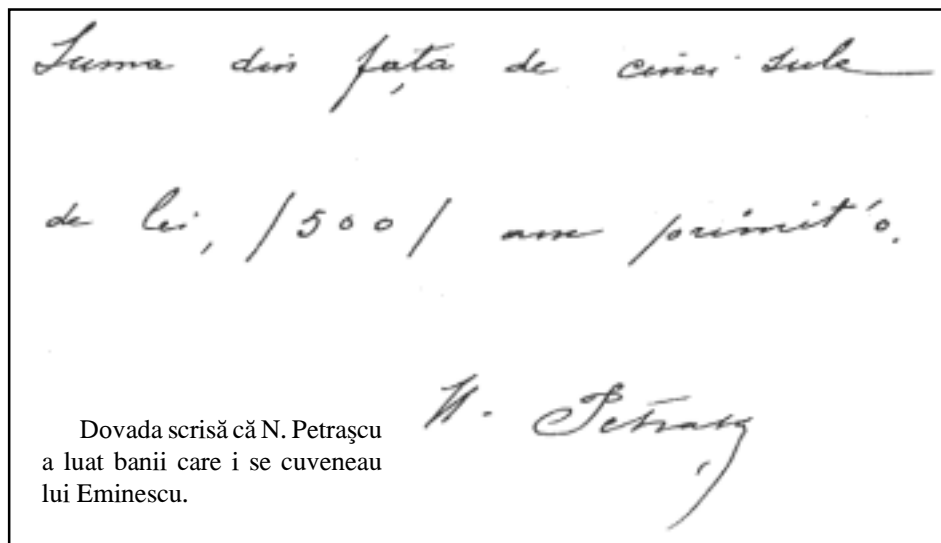 Suma din fața de cinci sute
de lei, /500/ am primit'o.
N. Petrașcu
Dovada scrisă că N. Petraşcu
a luat banii care i se cuveneau
lui Eminescu.